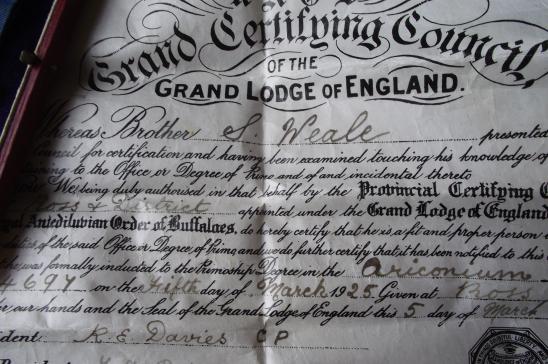 Grand Certifying Council,
OF THE
GRAND LODGE OF ENGLAND.
Whereas Brother S. Weale presented
Council for certification and having been examined touching his knowledge, of
to the Office or Degree of Primo and of and, incidental thereto
We, being duly authorised in that behalf by the Provincial Certifying C
Ross & District appointed under the Grand Lodge of England
Royal Antediluvian Order of Buffaloes, do hereby certify that he is, a fit and proper person
duties, of the said Office or Degree, of Primo, and we do further certify that it has been notified to this
he was formally inducted to the Primoship Degree in the Ariconium
4697 on the Fifth day of March 1925. Given at Ross
our hands and the Seal of the Grand Lodge of England this 5 day of March
ident: R E Davies C.P.